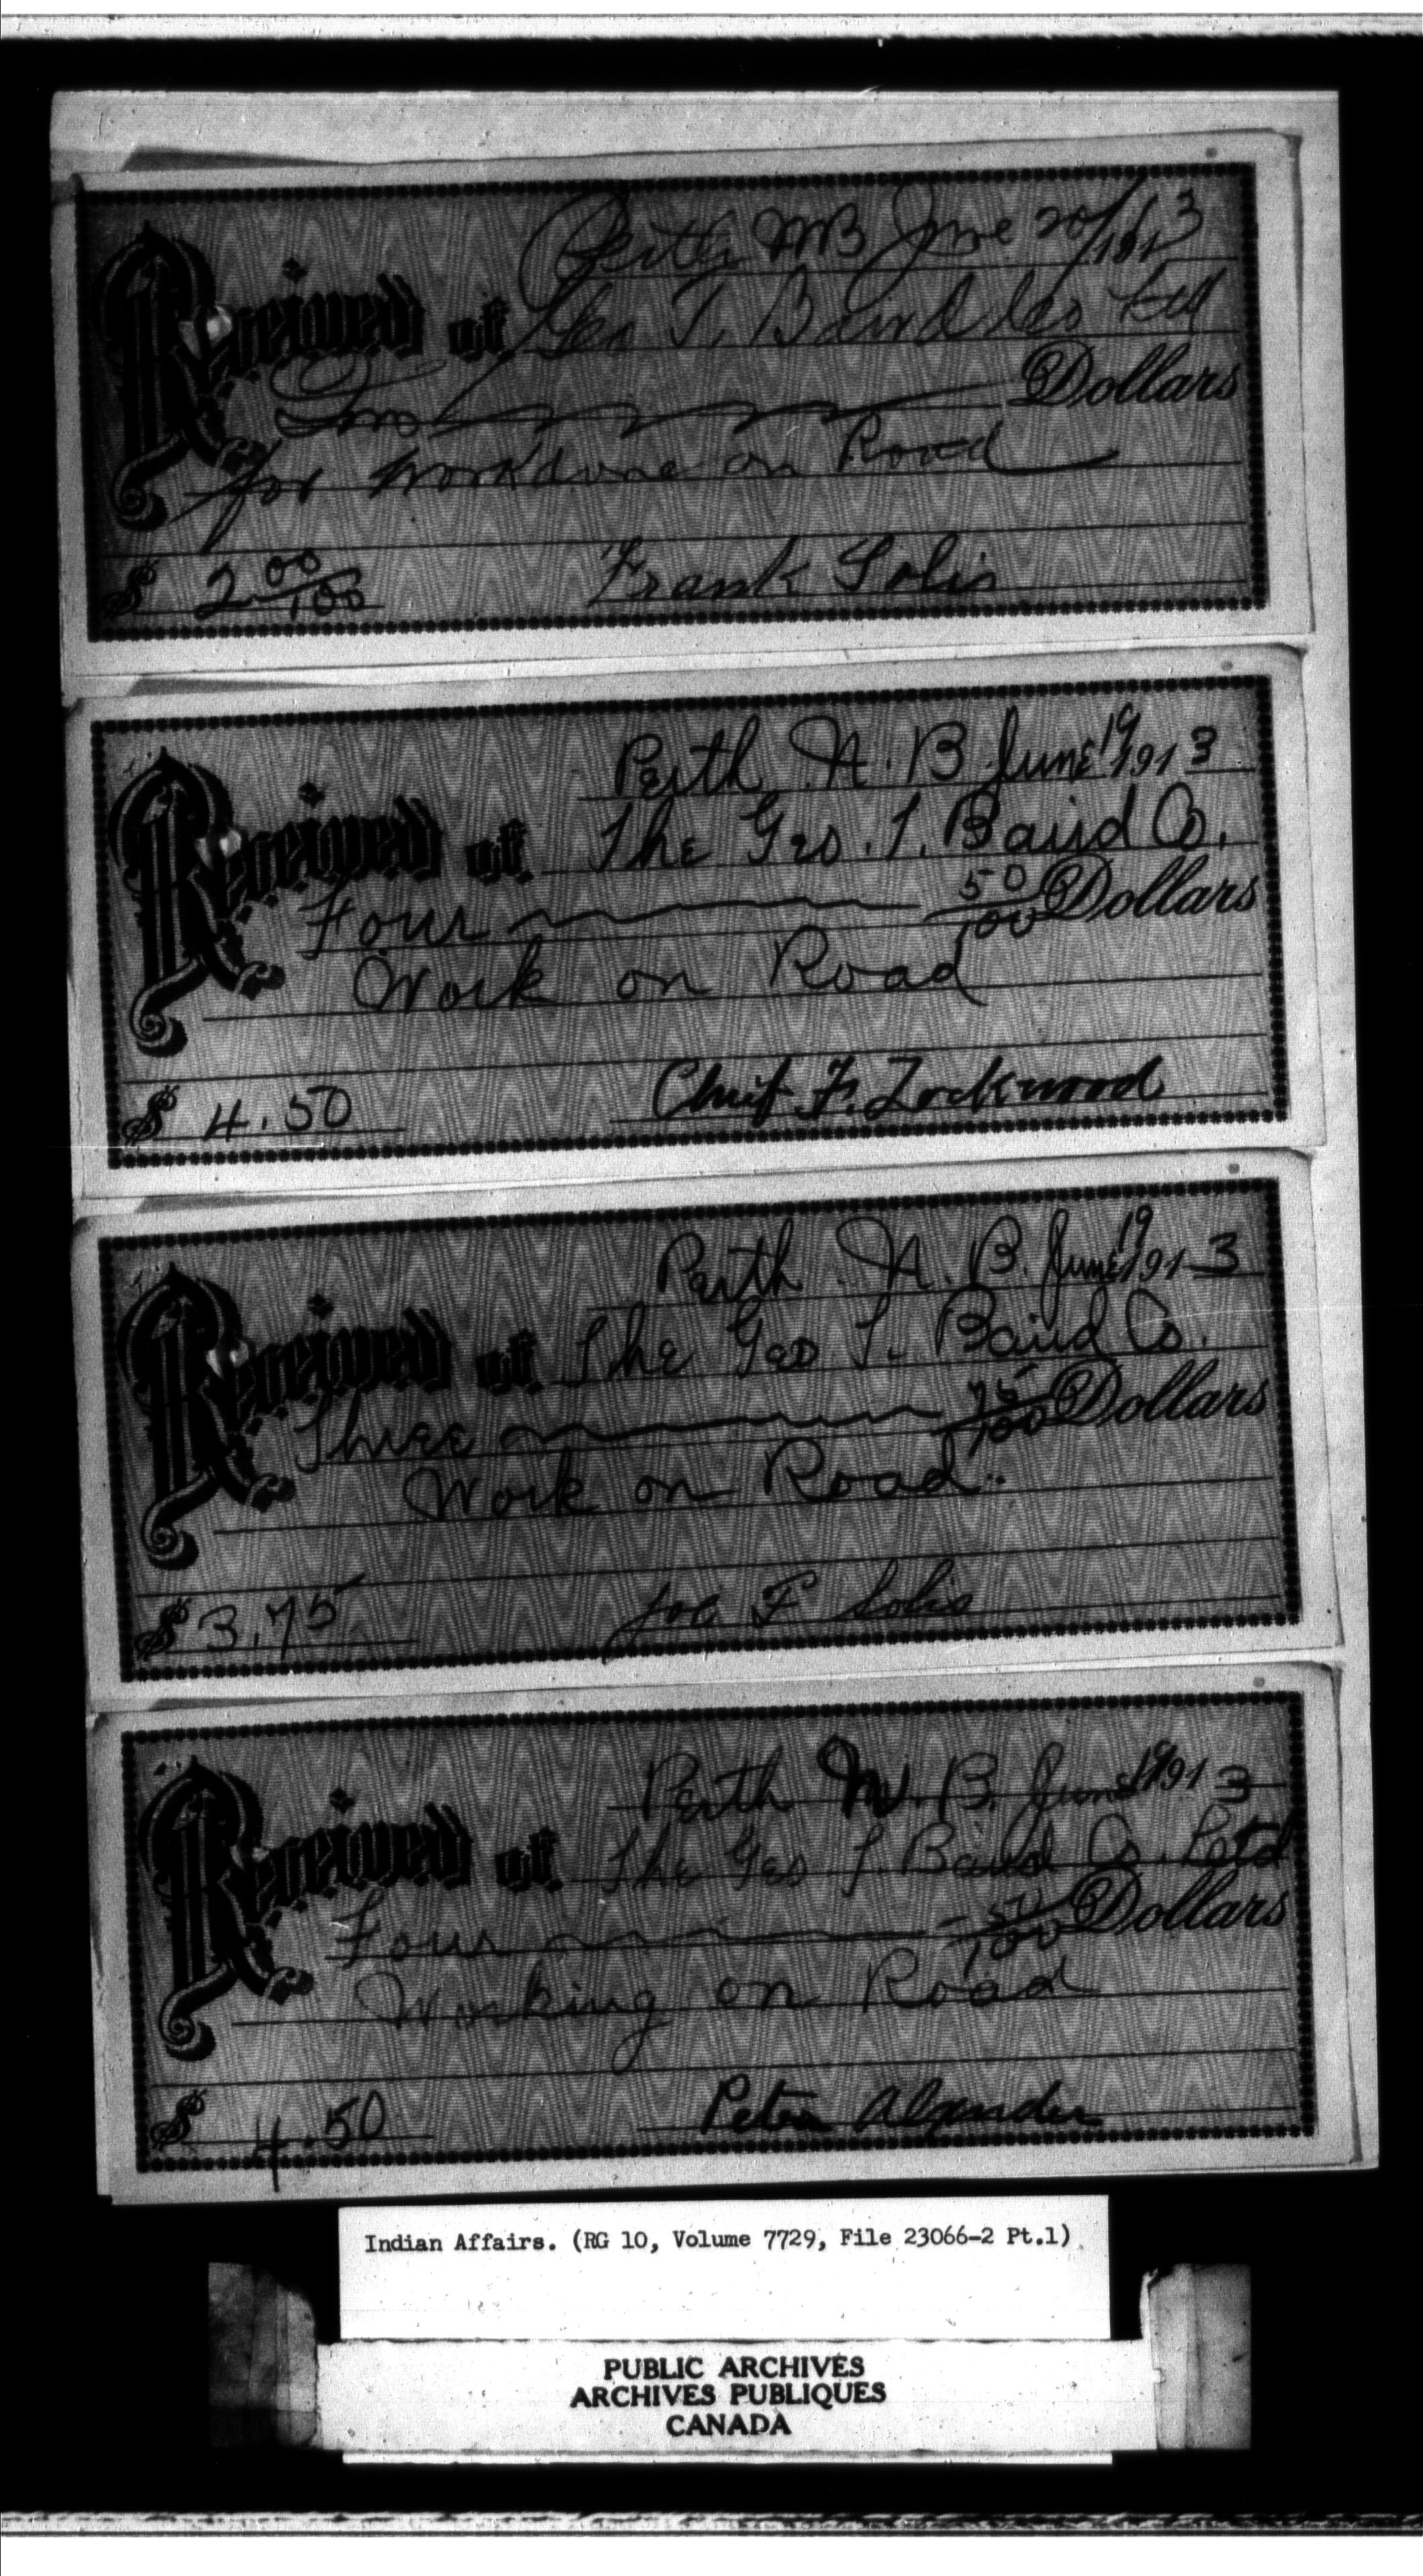 Perth NB June 20/1913
Received of Geo T. Baird Co Ltd
Two Dollars
for work done on Road
$ 2 00/100 Frank Solis
Perth N. B June 19 1913
Received of The Geo. T. Baird Co.
Four 50/100 Dollars
Work on Road
$ 4.50 Chief F. Lockwood
Perth N. B. June 19 1913
Received of The Geo T. Baird Co.
Three 75/100 Dollars
Work on Road
$ 3.75 Joe P Solis
Perth N. B. June 19 1913
Received of The Geo T. Baird Co. Lotd
Four 50/100 Dollars
Working on Road
$ 4.50 Peter Alexander
Indian Affairs. (RG 10, Volume 7729, File 23066-2 Pt.1)
PUBLIC ARCHIVES
ARCHIVES PUBLIQUES
CANADA